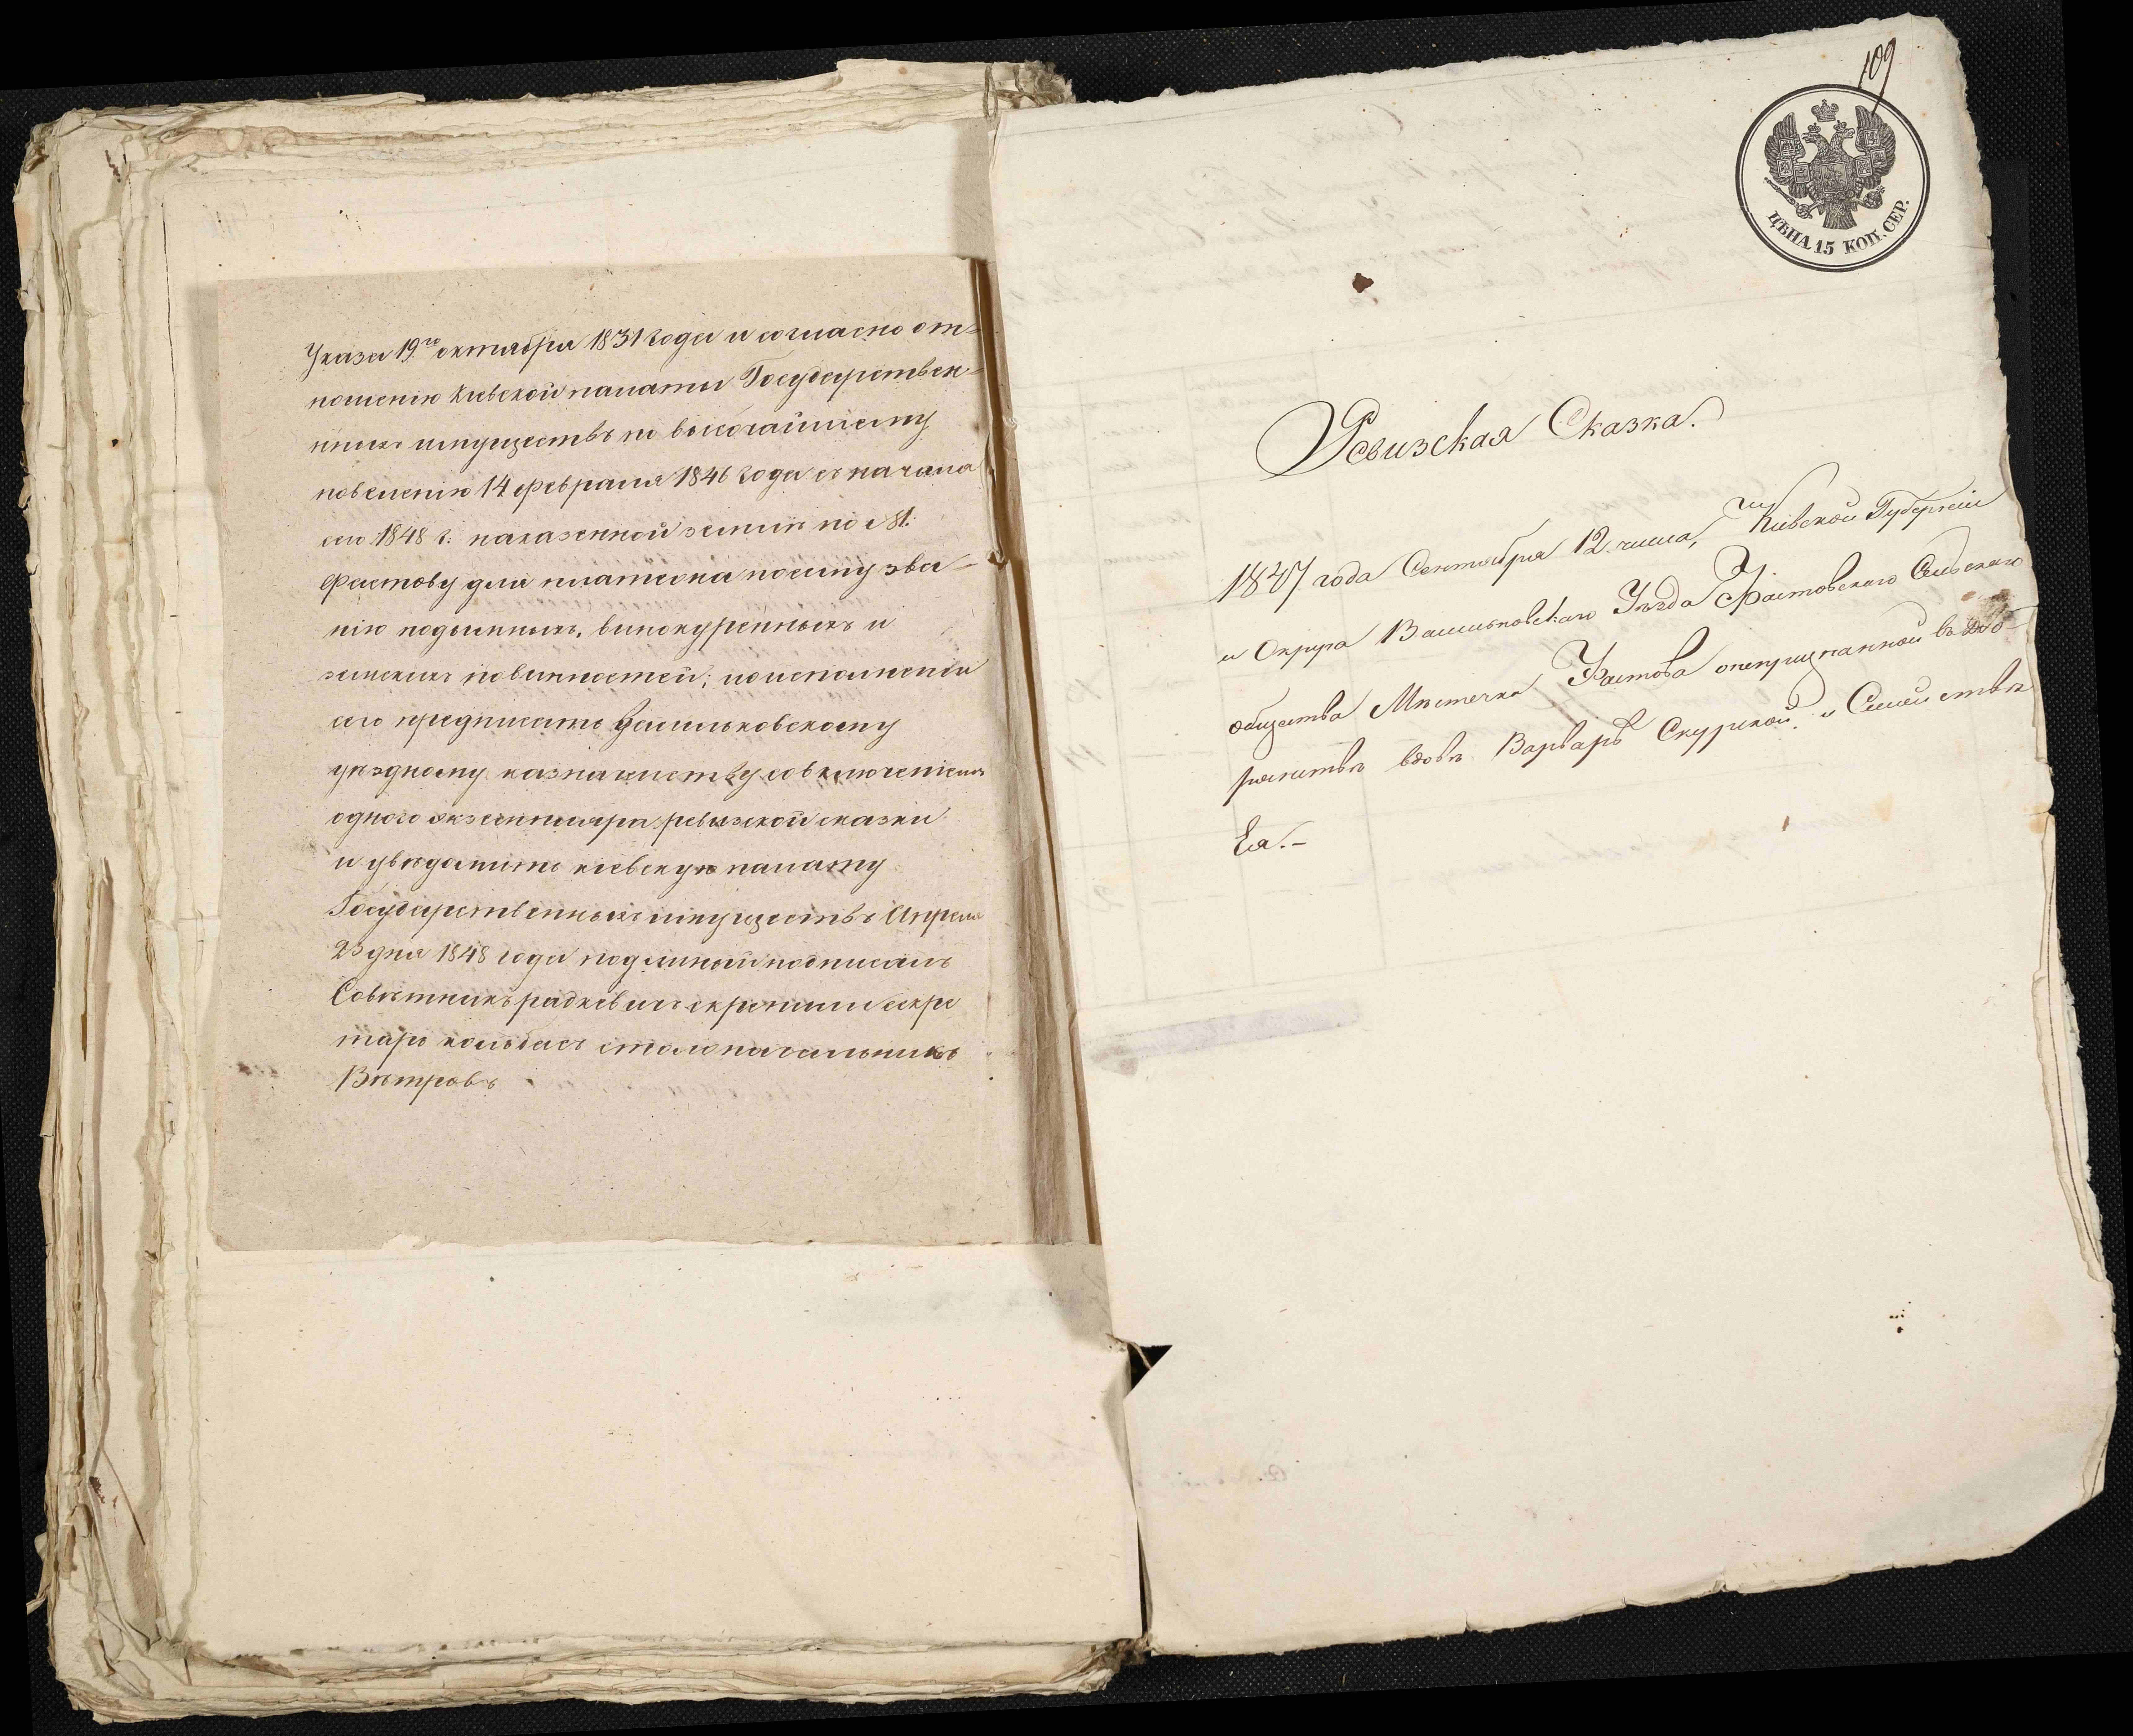 Указа 19го октября 1831 года и согласно от=
ношенію Кіевской палаты Государствен=
ныхъ имуществъ по высочайшему
повеленію 14 февраля 1846 года съ начала
сего 1848 г. на казенной земли по М:
Фастову для платежа по сему зва-
нію подымныхъ, винокуренныхъ и
земскихъ повинностей; по исполненіи
сего предписать Васильковскому
уѣздному казначейству со включеніемъ
одного экземпляра ревизской сказки
и увѣдомить кіевскую палату
Государственныхъ имуществъ Апреля
23 дня 1848 года подлиной подписалъ
Совѣтникъ радкевичъ скрепили секре
тарь колбасъ столоначальникъ
Вѣтровъ
109
ЦѢНА 15 КОП. СЕР.
Ревизская Сказка.
1847 года Сентября 12 числа, Кіевской Губерніи
и Округа Васильковскаго Уѣзда Фастовскаго Сельскаго
общества Мѣстечка Фастова о непризнанной въ Дво-
рянствѣ вдовѣ Варварѣ Скурской и Семействѣ
Ея.-